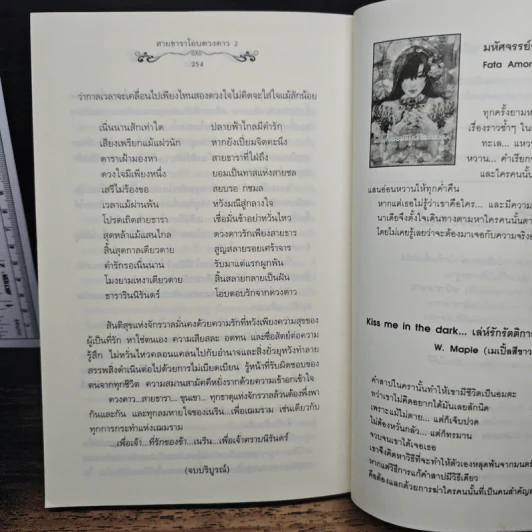 สายธาราโอบดวงดาว 2
254
ว่ากาลเวลาจะเคลื่อนไปเพียงไหนสองดวงใจไม่คิดจะใส่ใจแม้สักน้อย
เนิ่นนานสักเท่าใด ปลายฟ้าไกลมีคำรัก
เสียงเพรียกแม้แผ่วนัก หากยังเปี่ยมจิตคะนึง
ดาราเฝ้ามองหา สายธาราที่ใฝ่ถึง
ดวงใจมีเพียงหนึ่ง ยอมเป็นทาสแห่งสายชล
เสรีไม่ร้องขอ สยบรอ กชมล
เวลาแม้ผ่านพ้น หวังมณีสู่กลางใจ
โปรดเถิดสายธารา เชื่อมั่นข้าอย่าหวั่นไหว
สุดหล้าแม้แสนไกล ดวงดาวรักเพียงสายธาร
สิ้นสุดกาลเดียวดาย สูญสลายรอยเศร้าจาร
คำรักรอเนิ่นนาน รับมาแต่แรกผูกพัน
โมงยามเหงาเดียวดาย สิ้นสลายกลายเป็นฝัน
ธารารินนิรันดร์ โอบตอบรักจากดวงดาว
สันติสุขแห่งจักรวาลมั่นคงด้วยความรักที่หวังเพียงความสุขของ
ผู้เป็นที่รัก หาใช่ตนเอง ความเสียสละ อดทน และซื่อสัตย์ต่อความ
รู้สึก ไม่หวั่นไหวคลอนแคลนไปกับอำนาจและสิ่งยั่วยุหวังทำลาย
สรรพสิ่งดำเนินต่อไปด้วยการไม่เบียดเบียน รู้หน้าที่รับผิดชอบของ
ตนจากทุกชีวิต ความสมานสามัคคีหยั่งรากด้วยความเอื้ออกเข้าใจ
ดวงดาว...สายธารา... ขุนเขา... ทุกธาตุแห่งจักรวาลล้วนต้องพึ่งพา
กันและกัน และทุกลมหายใจของเนรีน...เพื่อเฌมราม เช่นเดียวกับ
ทุกการกระทำแห่งเฌมราม
...เพื่อเจ้า...ที่รักของข้า...เนรีน...เพื่อเจ้าตราบนิรันดร์
(จบบริบูรณ์)
มหัศจรรย์
Fata Amor
ทุกครั้งยามห
เรื่องราวซ้ำๆ ใน
ทะเล... แหว
หวาน... คำเรียก
และใครคนนั้น
แสนอ่อนหวานให้ทุกค่ำคืน
หากแต่เธอไม่รู้ว่าเขาคือใคร... และมีความ
นาเดียจึงตั้งใจเดินทางตามหาใครคนนั้นตา
โดยไม่เคยรู้เลยว่าจะต้องมาเจอกับความจริงอั
Kiss me in the dark... เล่ห์รักรัตติกา
W. Maple (เมเปิ้ลสีขาว
คำสาปในคราวนั้นทำให้เขามีชีวิตเป็นอมตะ
ทว่าเขาไม่คิดอยากได้มันเลยสักนิด
เพราะแม้ไม่ตาย... แต่ก็เจ็บปวด
ไม่ต้องหวั่นกลัว... แต่ก็ทรมาน
จวบจนเขาได้เจอเธอ
เขาจึงคิดหาวิธีที่จะทำให้ตัวเองหลุดพ้นจากมนตร์
หากแต่วิธีการแก้คำสาปมีวิธีเดียว
คือต้องแลกด้วยการฆ่าใครคนนั้นที่เป็นคนสำคัญ